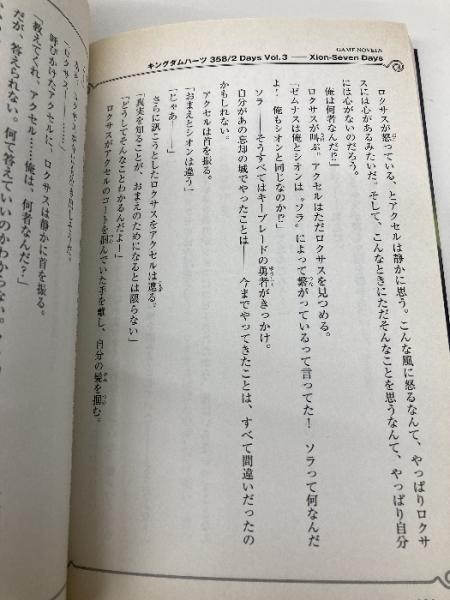 GAME NOVELS
キングダムハーツ 358/2 Days Vol.3 ── Xion-Seven Days
ロクサスが怒っている、とアクセルは静かに思う。こんな風に怒るなんて、やっぱりロクサ
スには心があるみたいだ。そして、こんなときにただそんなことを思うなんて、やっぱり自分
には心がないのだろう。
「俺は何者なんだ!?」
ロクサスが叫ぶ。アクセルはただロクサスを見つめる。
「ゼムナスは俺とシオンは〝ソラ〟によって繋がっているって言ってた! ソラって何なんだ
よ! 俺もシオンと同じなのか!?」
ソラ──そうすべてはキーブレードの勇者がきっかけ。
自分があの忘却の城でやったことは── 今までやってきたことは、すべて間違いだったの
かもしれない。
アクセルは首を振る。
「おまえとシオンは違う」
「じゃあ──」
さらに訊こうとしたロクサスをアクセルは遮る。
「真実を知ることが、おまえのためになるとは限らない」
「どうしてそんなことわかるんだよ!」
ロクサスがアクセルのコートを掴んでいた手を離し、自分の髪を掴む。
「ロクサス……」
呼びかけたアクセルに、ロクサスは静かに首を振る。
「教えてくれ、アクセル……俺は、何者なんだ?」
だが、答えられない。何て答えていいのかわからない。